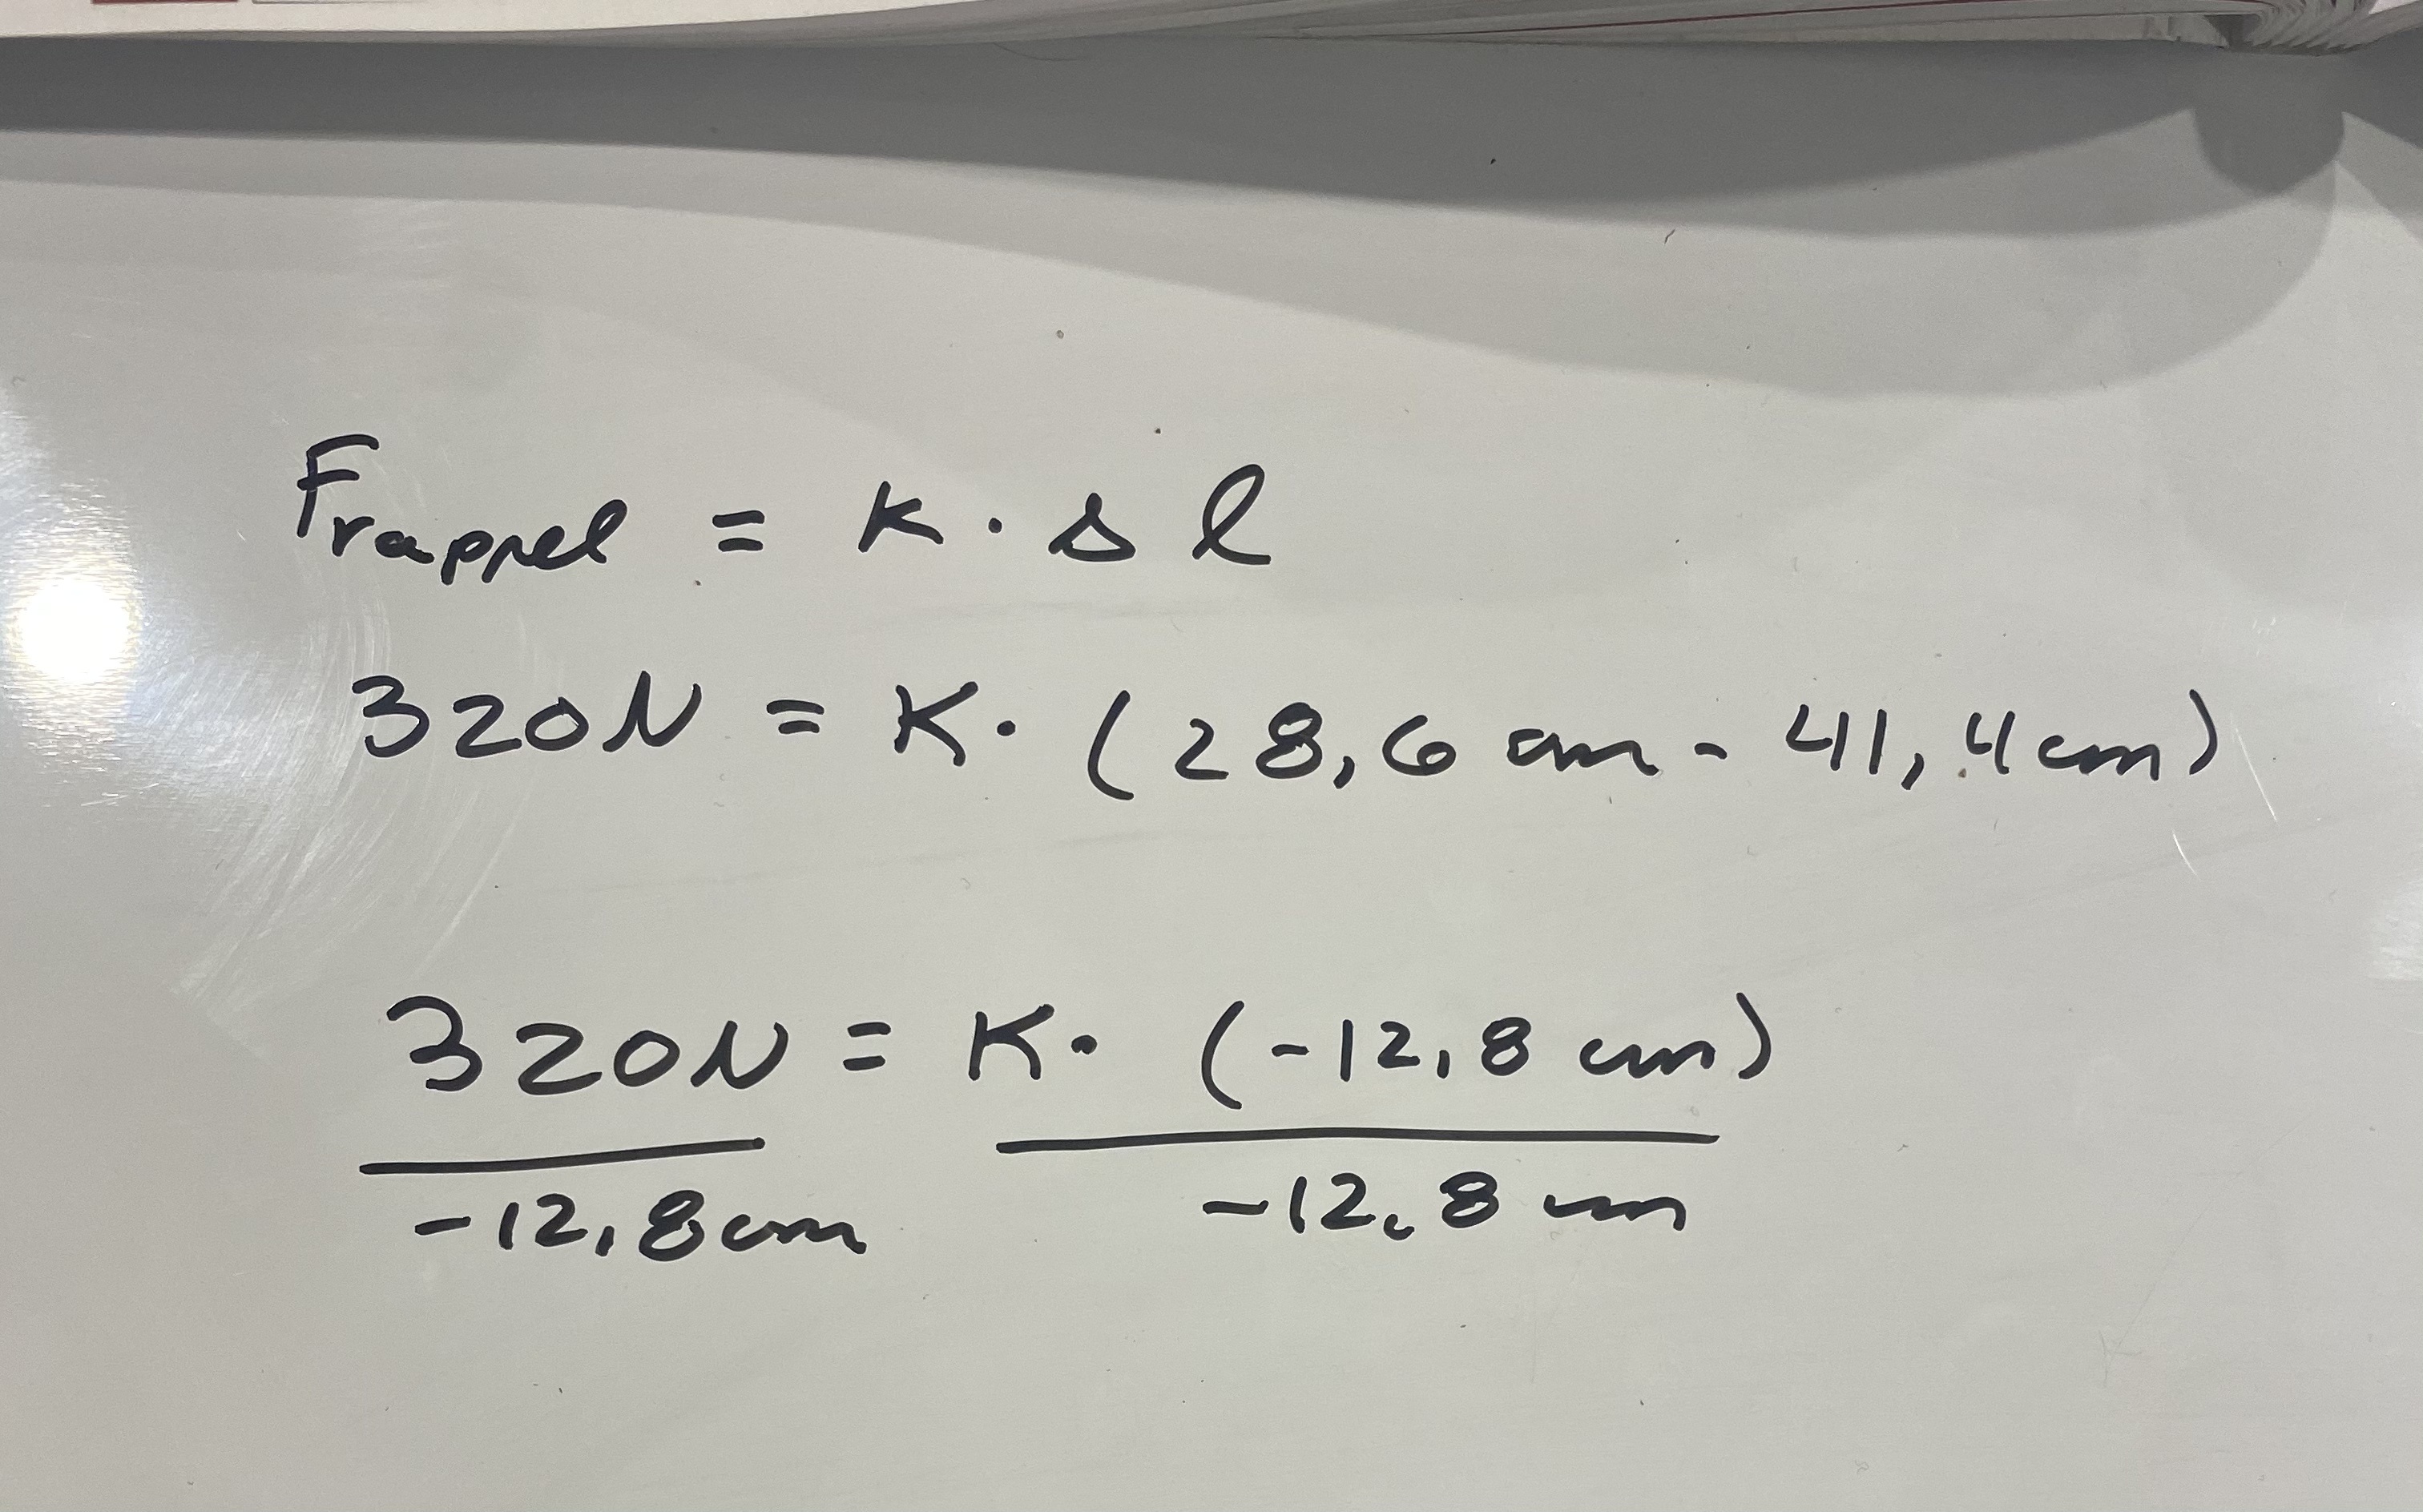 Frappel = K · Δ l
320N = K · (28,6 cm - 41,4 cm)
320N = K · (-12,8 cm)
-12,8 cm -12,8 cm